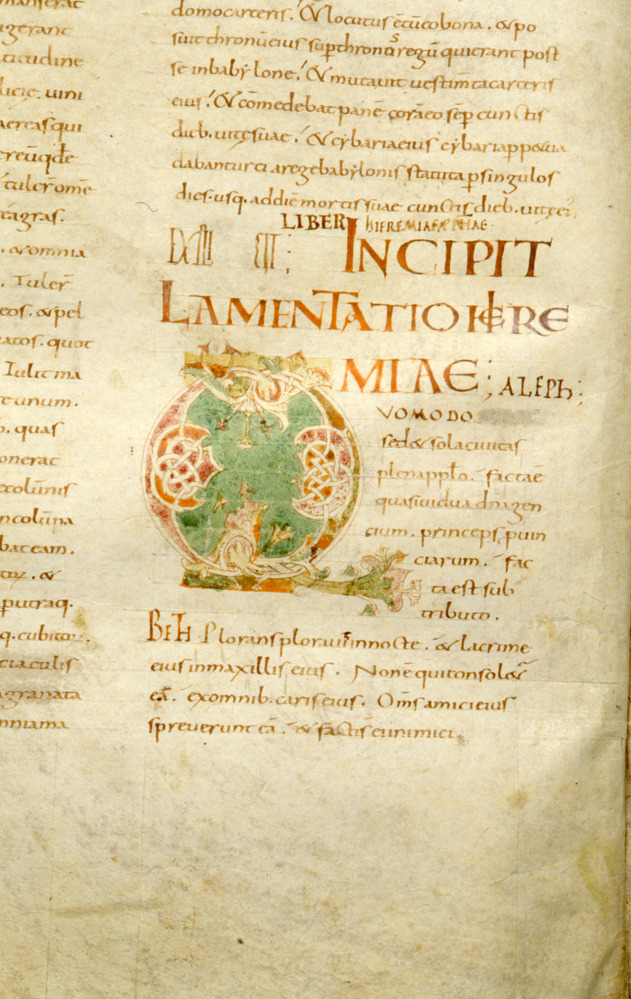 manserat
igerant
titudine
licie. uini
aereas qui
ercuq; de
tuler ome
tagras.
. & omnia
. Tuler
eos. & pel
atos. quot
Tulit ma
et unum.
o. quas
onerat
&coluns
ncoluna
bateam.
& 
putraq.
q. cubitor.
tiaculis
granata
mniama
domo carceris. & locutus e cu eo bona. & po
suit thronu eius sup thronos regu qui erant post
se in babylone. & mutauit uestimta carceris
eius. & comedebat pane cora eo sep cunctis
dieb. uitę suae. & cybaria eius cybaria ppetua
dabantur ei a rege babylonis statuta p singulos
dies. usq. ad die mortis suae cunctis dieb. uitę ei
EXPLI CIT; LIBER HIEREMIAE PPHAE. INCIPIT
LAMENTATIO HIERE
MIAE; ALEPh;
QUOMODO
sed& sola ciuitas
plena pplo. facta e
quasi uidua dna gen
cium. princeps puin
ciarum. fac
ta est sub
tributo.
BETH Plorans plorauit in nocte. & lacrime
eius in maxillis eius. Non e qui consol&
ea. ex omnib. caris eius. Oms amici eius
spreuerunt ea. & facti s ei inimici.